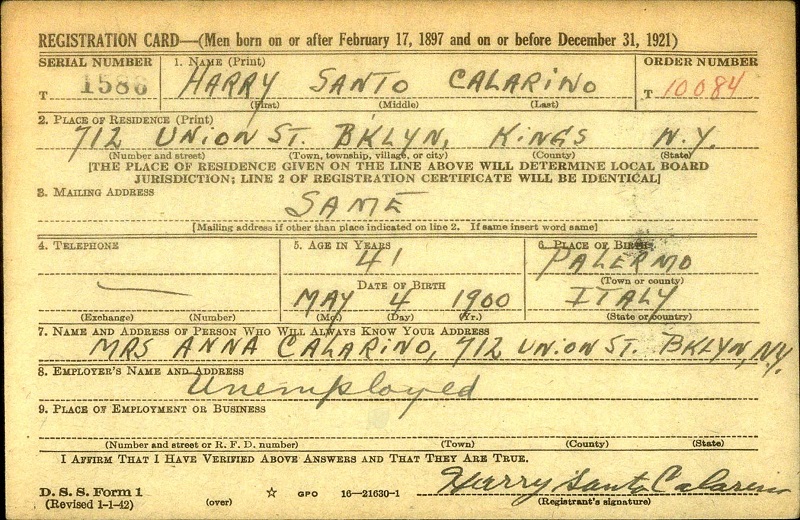 REGISTRATION CARD—(Men born on or after February 17, 1897 and on or before December 31, 1921)
SERIAL NUMBER 1. NAME (Print) ORDER NUMBER
T 1586 HARRY SANTO CALARINO T 10084
(First) (Middle) (Last)
2. PLACE OF RESIDENCE (Print)
712 UNION ST. B'KLYN, KINGS N.Y.
(Number and street) (Town, township, village, or city) (County) (State)
[THE PLACE OF RESIDENCE GIVEN ON THE LINE ABOVE WILL DETERMINE LOCAL BOARD
JURISDICTION; LINE 2 OF REGISTRATION CERTIFICATE WILL BE IDENTICAL]
3. MAILING ADDRESS
SAME
[Mailing address if other than place indicated on line 2. If same insert word same]
4. TELEPHONE 5. AGE IN YEARS 6. PLACE OF BIRTH
41 PALERMO
DATE OF BIRTH (Town or county)
MAY 4 1900 ITALY
(Exchange) (Number) (Mo.) (Day) (Yr.) (State or country)
7. NAME AND ADDRESS OF PERSON WHO WILL ALWAYS KNOW YOUR ADDRESS
MRS ANNA CALARINO, 712 UNION ST. BKLYN, N.Y.
8. EMPLOYER'S NAME AND ADDRESS
Unemployed
9. PLACE OF EMPLOYMENT OR BUSINESS
(Number and street or R. F. D. number) (Town) (County) (State)
I AFFIRM THAT I HAVE VERIFIED ABOVE ANSWERS AND THAT THEY ARE TRUE.
Harry Santo Calarino
D. S. S. Form 1
(Revised 1-1-42) (over) ☆ GPO 16—21630-1 (Registrant's signature)